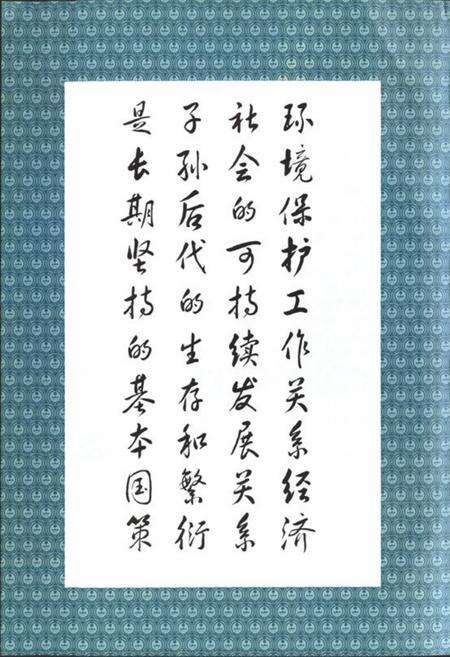 环境保护工作关系经济
社会的可持续发展关系
子孙后代的生存和繁衍
是长期坚持的基本国策